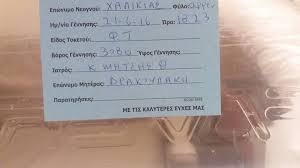 Επώνυμο Νεογνού: ΧΑΛΙΚΙΑΣ Φύλο:
Ημ/νία Γέννησης: 21-6-16 Ώρα: 18 23
Είδος Τοκετού: ΦΤ
Βάρος Γέννησης: 3080 Ύψος Γέννησης:
Ιατρός: Κ ΜΗΤΣΗΣ Θ
Επώνυμο Μητέρας: ΔΡΑΚΤΥΛΑΚΗ
Παρατηρήσεις:
ΜΕ ΤΙΣ ΚΑΛΥΤΕΡΕΣ ΕΥΧΕΣ ΜΑΣ